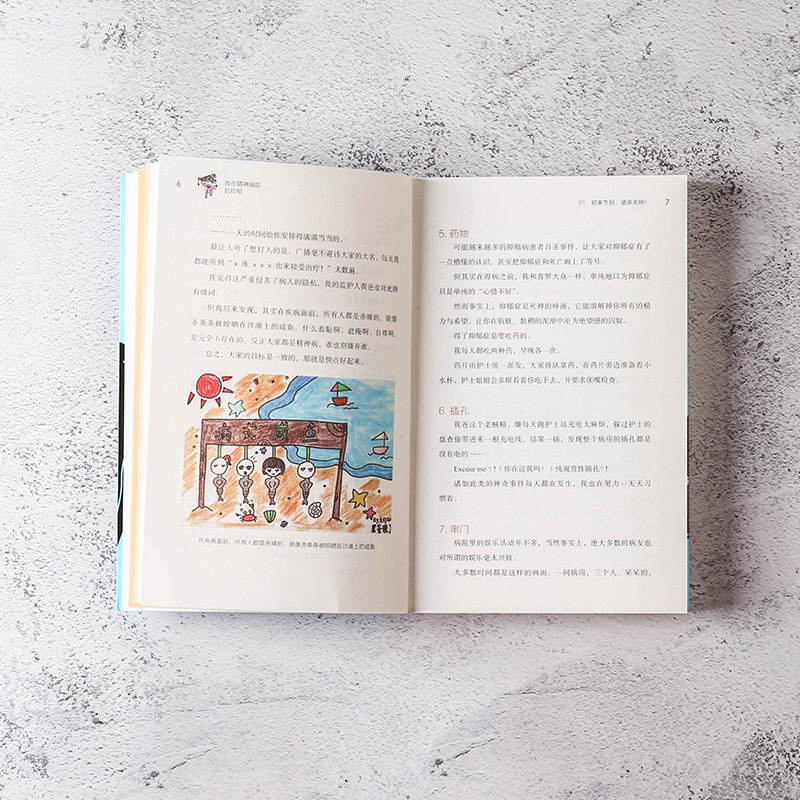 6
我在精神病院
抗抑郁
…………
———一天的时间给你安排得满满当当的。
最让人听了想打人的是，广播毫不避讳大家的大名，每天我
都能听到“×床×××出来接受治疗！”无数遍。
我觉得这严重侵害了病人的隐私，我的监护人我爸也对此颇
有微词。
但我后来发现，其实在疾病面前，所有人都是赤裸的，就像
赤条条被晾晒在沙滩上的咸鱼。什么羞耻啊、遮掩啊、自尊啊，
是完全不存在的。反正大家都是精神病，谁也别嫌弃谁。
总之，大家的目标是一致的，那就是快点好起来。
病式咸鱼
在疾病面前，所有人都是赤裸的，就像赤条条被晾晒在沙滩上的咸鱼
01 初来乍到，请多关照！
7
5. 药物
可能越来越多的抑郁病患者自杀事件，让大家对抑郁症有了
一点懵懂的认识，甚至把抑郁症和死亡画上了等号。
但其实在得病之前，我和普罗大众一样，单纯地以为抑郁症
只是单纯的“心情不好”。
然而事实上，抑郁症是死神的唾液，它能溶解掉你所有的精
力与希望，让你在肮脏、黏稠的泥淖中沦为绝望感的囚奴。
得了抑郁症是要吃药的。
我每天都吃两种药，早晚各一次。
药片由护士统一派发，大家排队拿药，在药片旁边准备着小
水杯，护士姐姐会亲眼看着你吃下去，并要求张嘴检查。
6. 插孔
我爸这个老贼精，嫌每天跑护士站充电太麻烦，躲过护士的
盘查偷带进来一根充电线。结果一插，发现整个病房的插孔都是
没有电的……
Excuse me？！（你在逗我吗？）纯观赏性插孔？！
诸如此类的神奇事件每天都在发生，我也在努力一天天习
惯着。
7. 串门
病院里的娱乐活动并不多，当然事实上，绝大多数的病友也
对所谓的娱乐毫无兴致。
大多数时间都是这样的画面：一间病房，三个人，呆呆的，